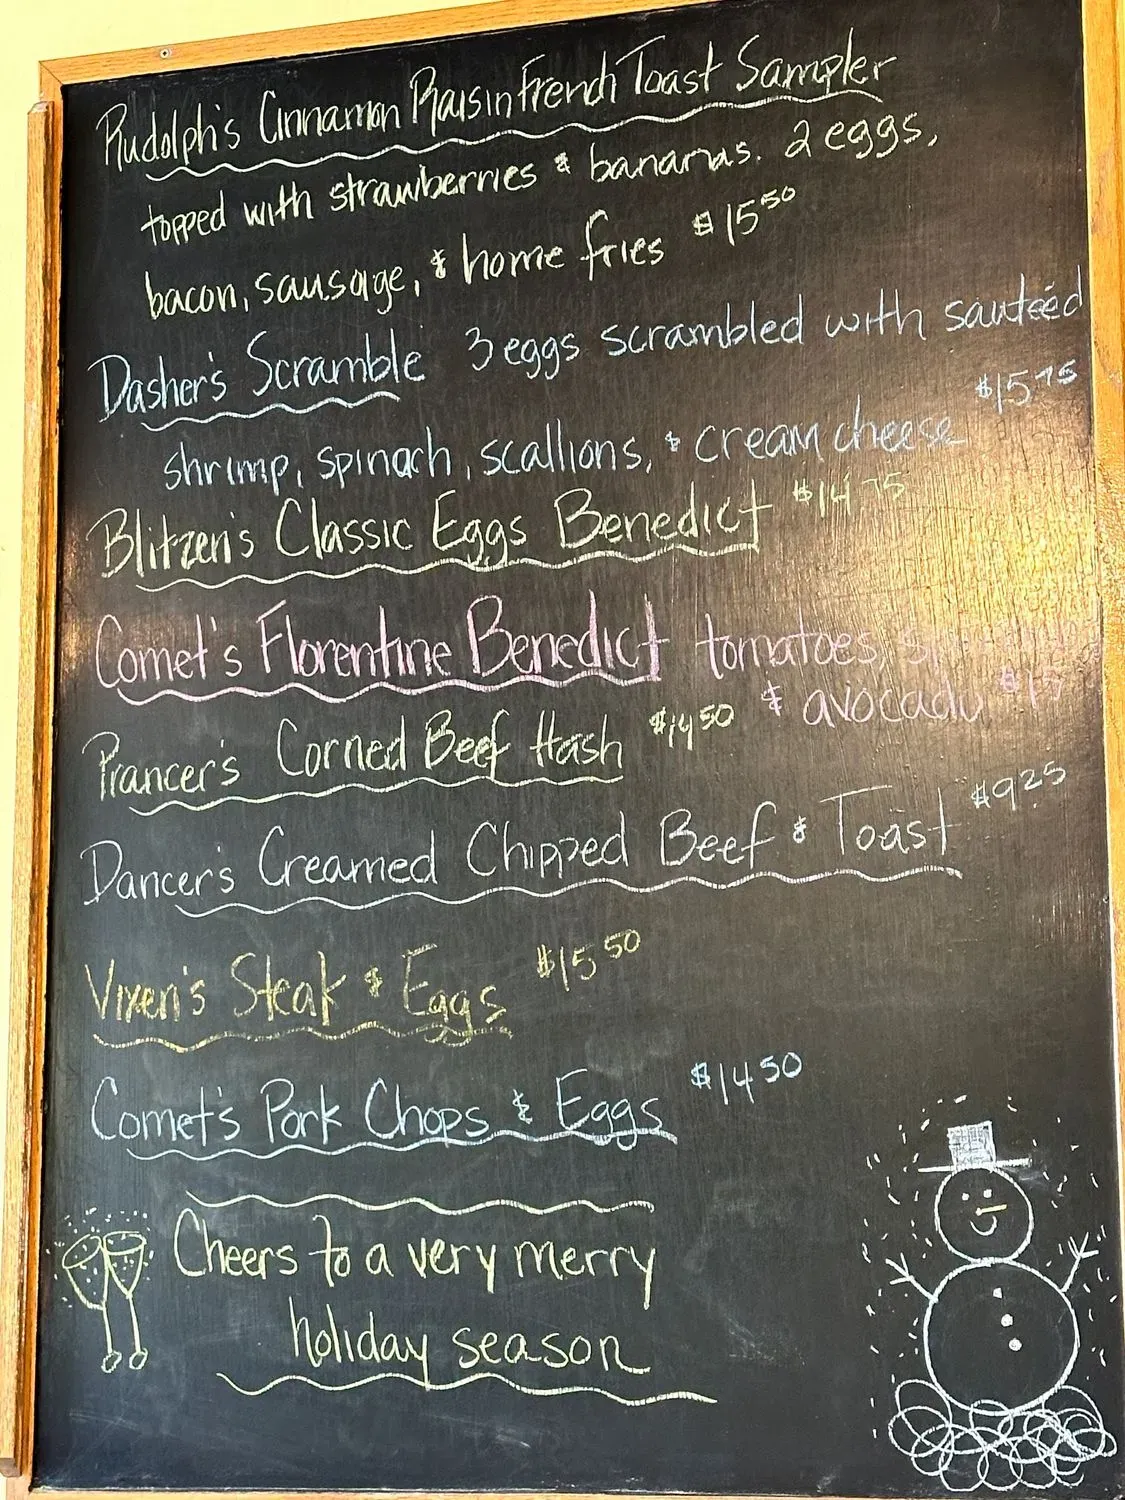 Rudolph's Cinnamon Raisin French Toast Sampler
topped with strawberries & bananas. 2 eggs,
bacon, sausage, & home fries $15.50
Dasher's Scramble 3 eggs scrambled with sautéed
shrimp, spinach, scallions, & cream cheese $15.75
Blitzen's Classic Eggs Benedict $14.75
Comet's Florentine Benedict tomatoes,
& avocado
Prancer's Corned Beef Hash $14.50
Dancer's Creamed Chipped Beef & Toast $9.25
Vixen's Steak & Eggs $15.50
Comet's Pork Chops & Eggs $14.50
Cheers to a very merry
holiday season